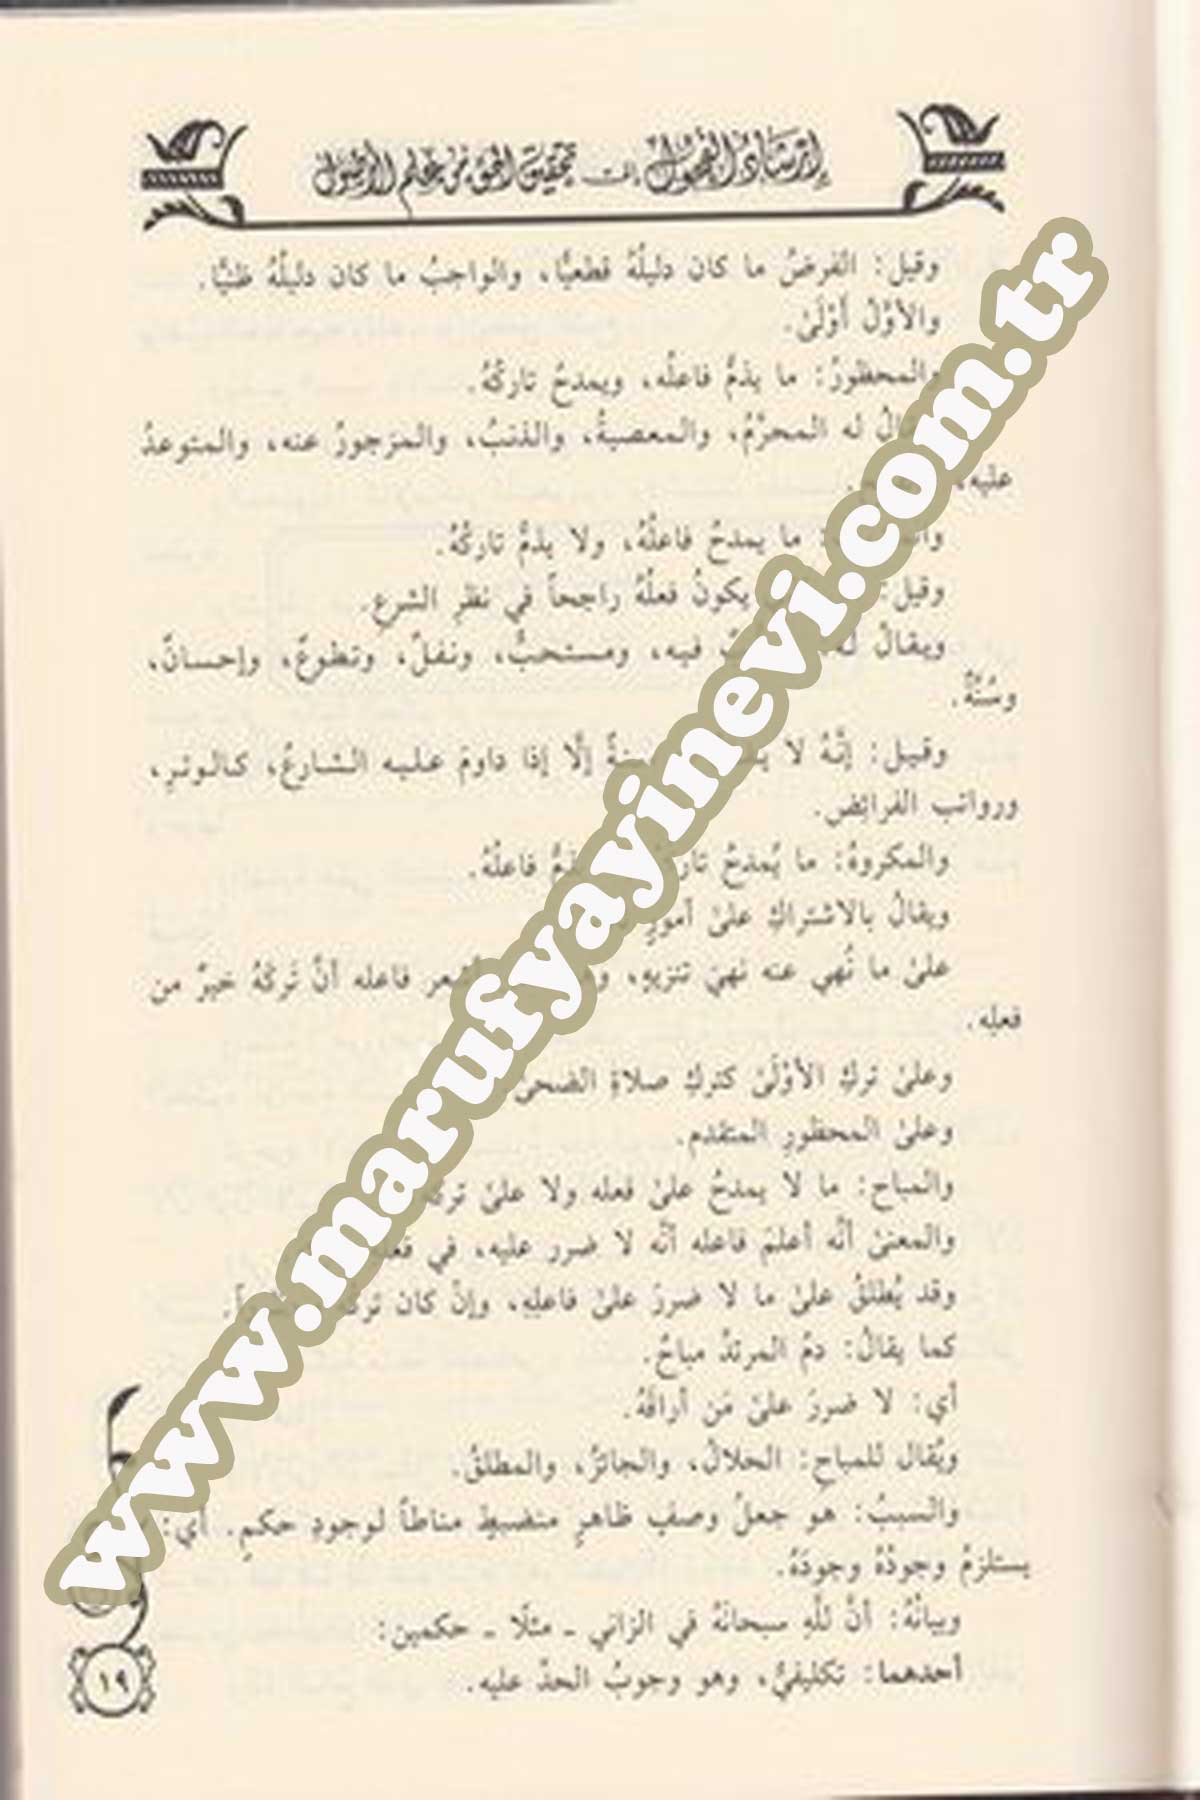 إرشاد الفحول إلى تحقيق الحق من علم الأصول
وقيل: الفرضُ ما كان دليلُهُ قطعيًّا، والواجبُ ما كان دليلُهُ ظنيًّا.
والأوَّلُ أَوْلَىٰ.
والمحظورُ: ما يذمُّ فاعلُه، ويمدحُ تاركُهُ.
له المحرَّمُ، والمعصيةُ، والذنبُ، والمزجورُ عنه، والمتوعدُ
عليه،
ما يمدحُ فاعلُهُ، ولا يذمُّ تاركُهُ.
وقيل: يكونُ فعلُهُ راجحاً في نظرِ الشرعِ.
ويقالُ له فيه، ومستحبٌّ، ونفلٌ، وتطوعٌ، وإحسانٌ،
وسُنَّةٌ.
وقيل: إنَّهُ لا إلَّا إذا داومَ عليه الشارعُ، كالوترِ،
ورواتب الفرائض.
والمكروهُ: ما يُمدحُ فاعلُهُ.
ويقالُ بالاشتراكِ علىٰ أمورٍ
علىٰ ما نُهي عنه نهيَ تنزيهٍ، فاعله أنَّ تَركَهُ خيرٌ من
فعلِه.
وعلىٰ تركِ الأوْلَىٰ كتركِ صلاةِ الضحىٰ
وعلىٰ المحظورِ المتقدم.
والمباح: ما لا يمدحُ علىٰ فعله ولا علىٰ
والمعنىٰ أنَّه أعلمَ فاعله أنَّه لا ضرر عليه، في
وقد يُطلقُ علىٰ ما لا ضررَ علىٰ فاعلِهِ، وإنْ كان
كما يقالُ: دمُ المرتدِّ مباحٌ.
أي: لا ضررَ علىٰ مَن أراقَهُ.
ويُقال للمباحِ: الحلالُ، والجائزُ، والمطلقُ.
والسببُ: هو جعلُ وصفٍ ظاهرٍ منضبطٍ مناطاً لوجودِ حكمٍ. أي:
يستلزمُ وجودُهُ وجودَهُ.
وبيانُهُ: أنَّ للَّهِ سبحانَهُ في الزاني ـ مثلًا ـ حكمين:
أحدهما: تكليفيٌّ، وهو وجوبُ الحدِّ عليه.
١٩
www.marufyayinevi.com.tr